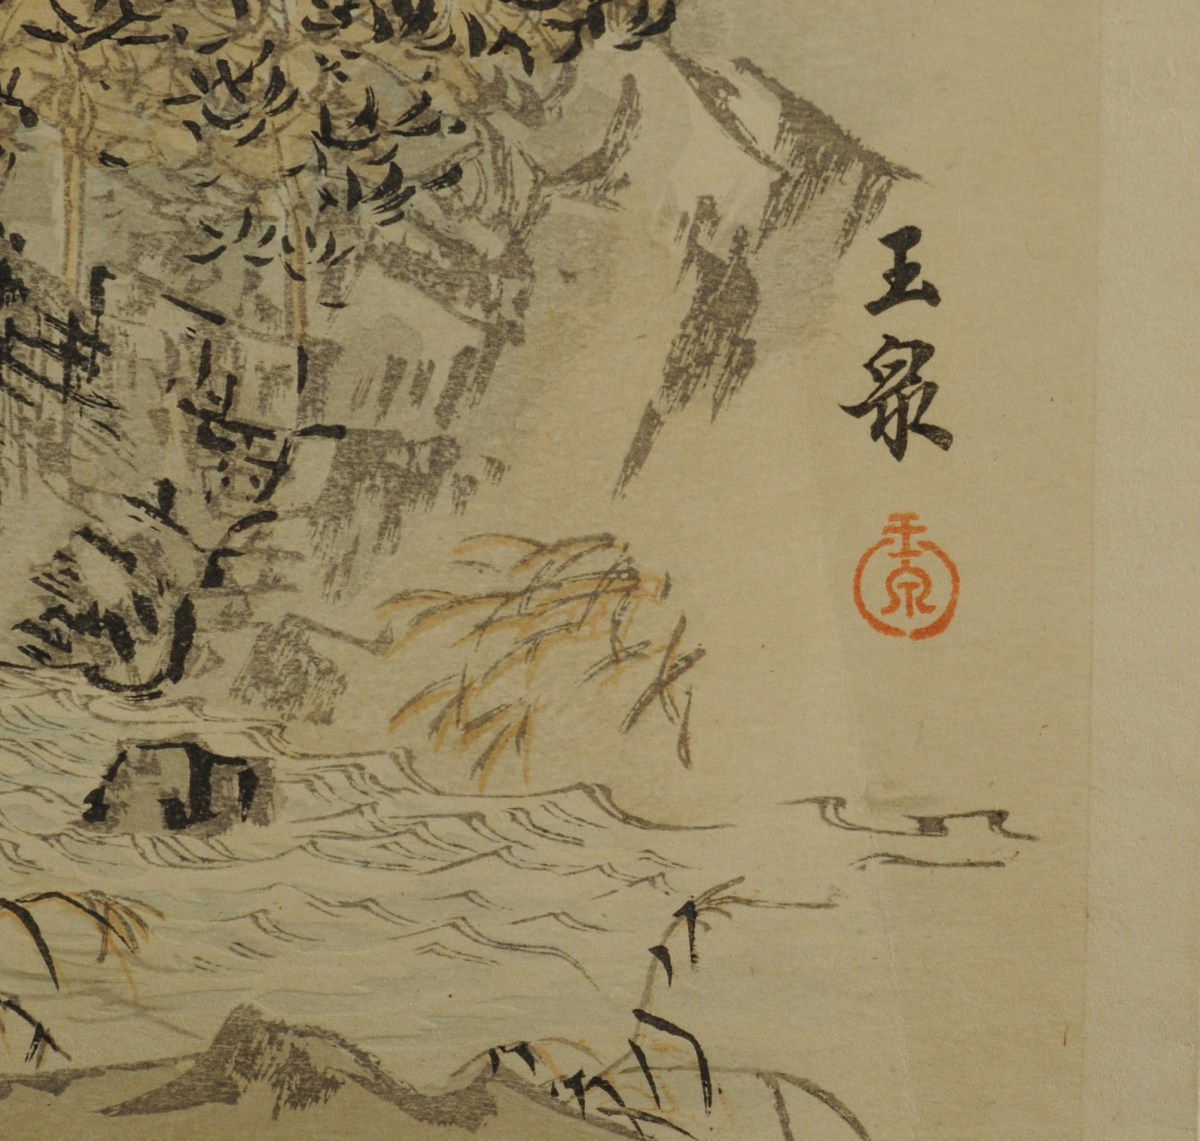 玉泉
玉泉